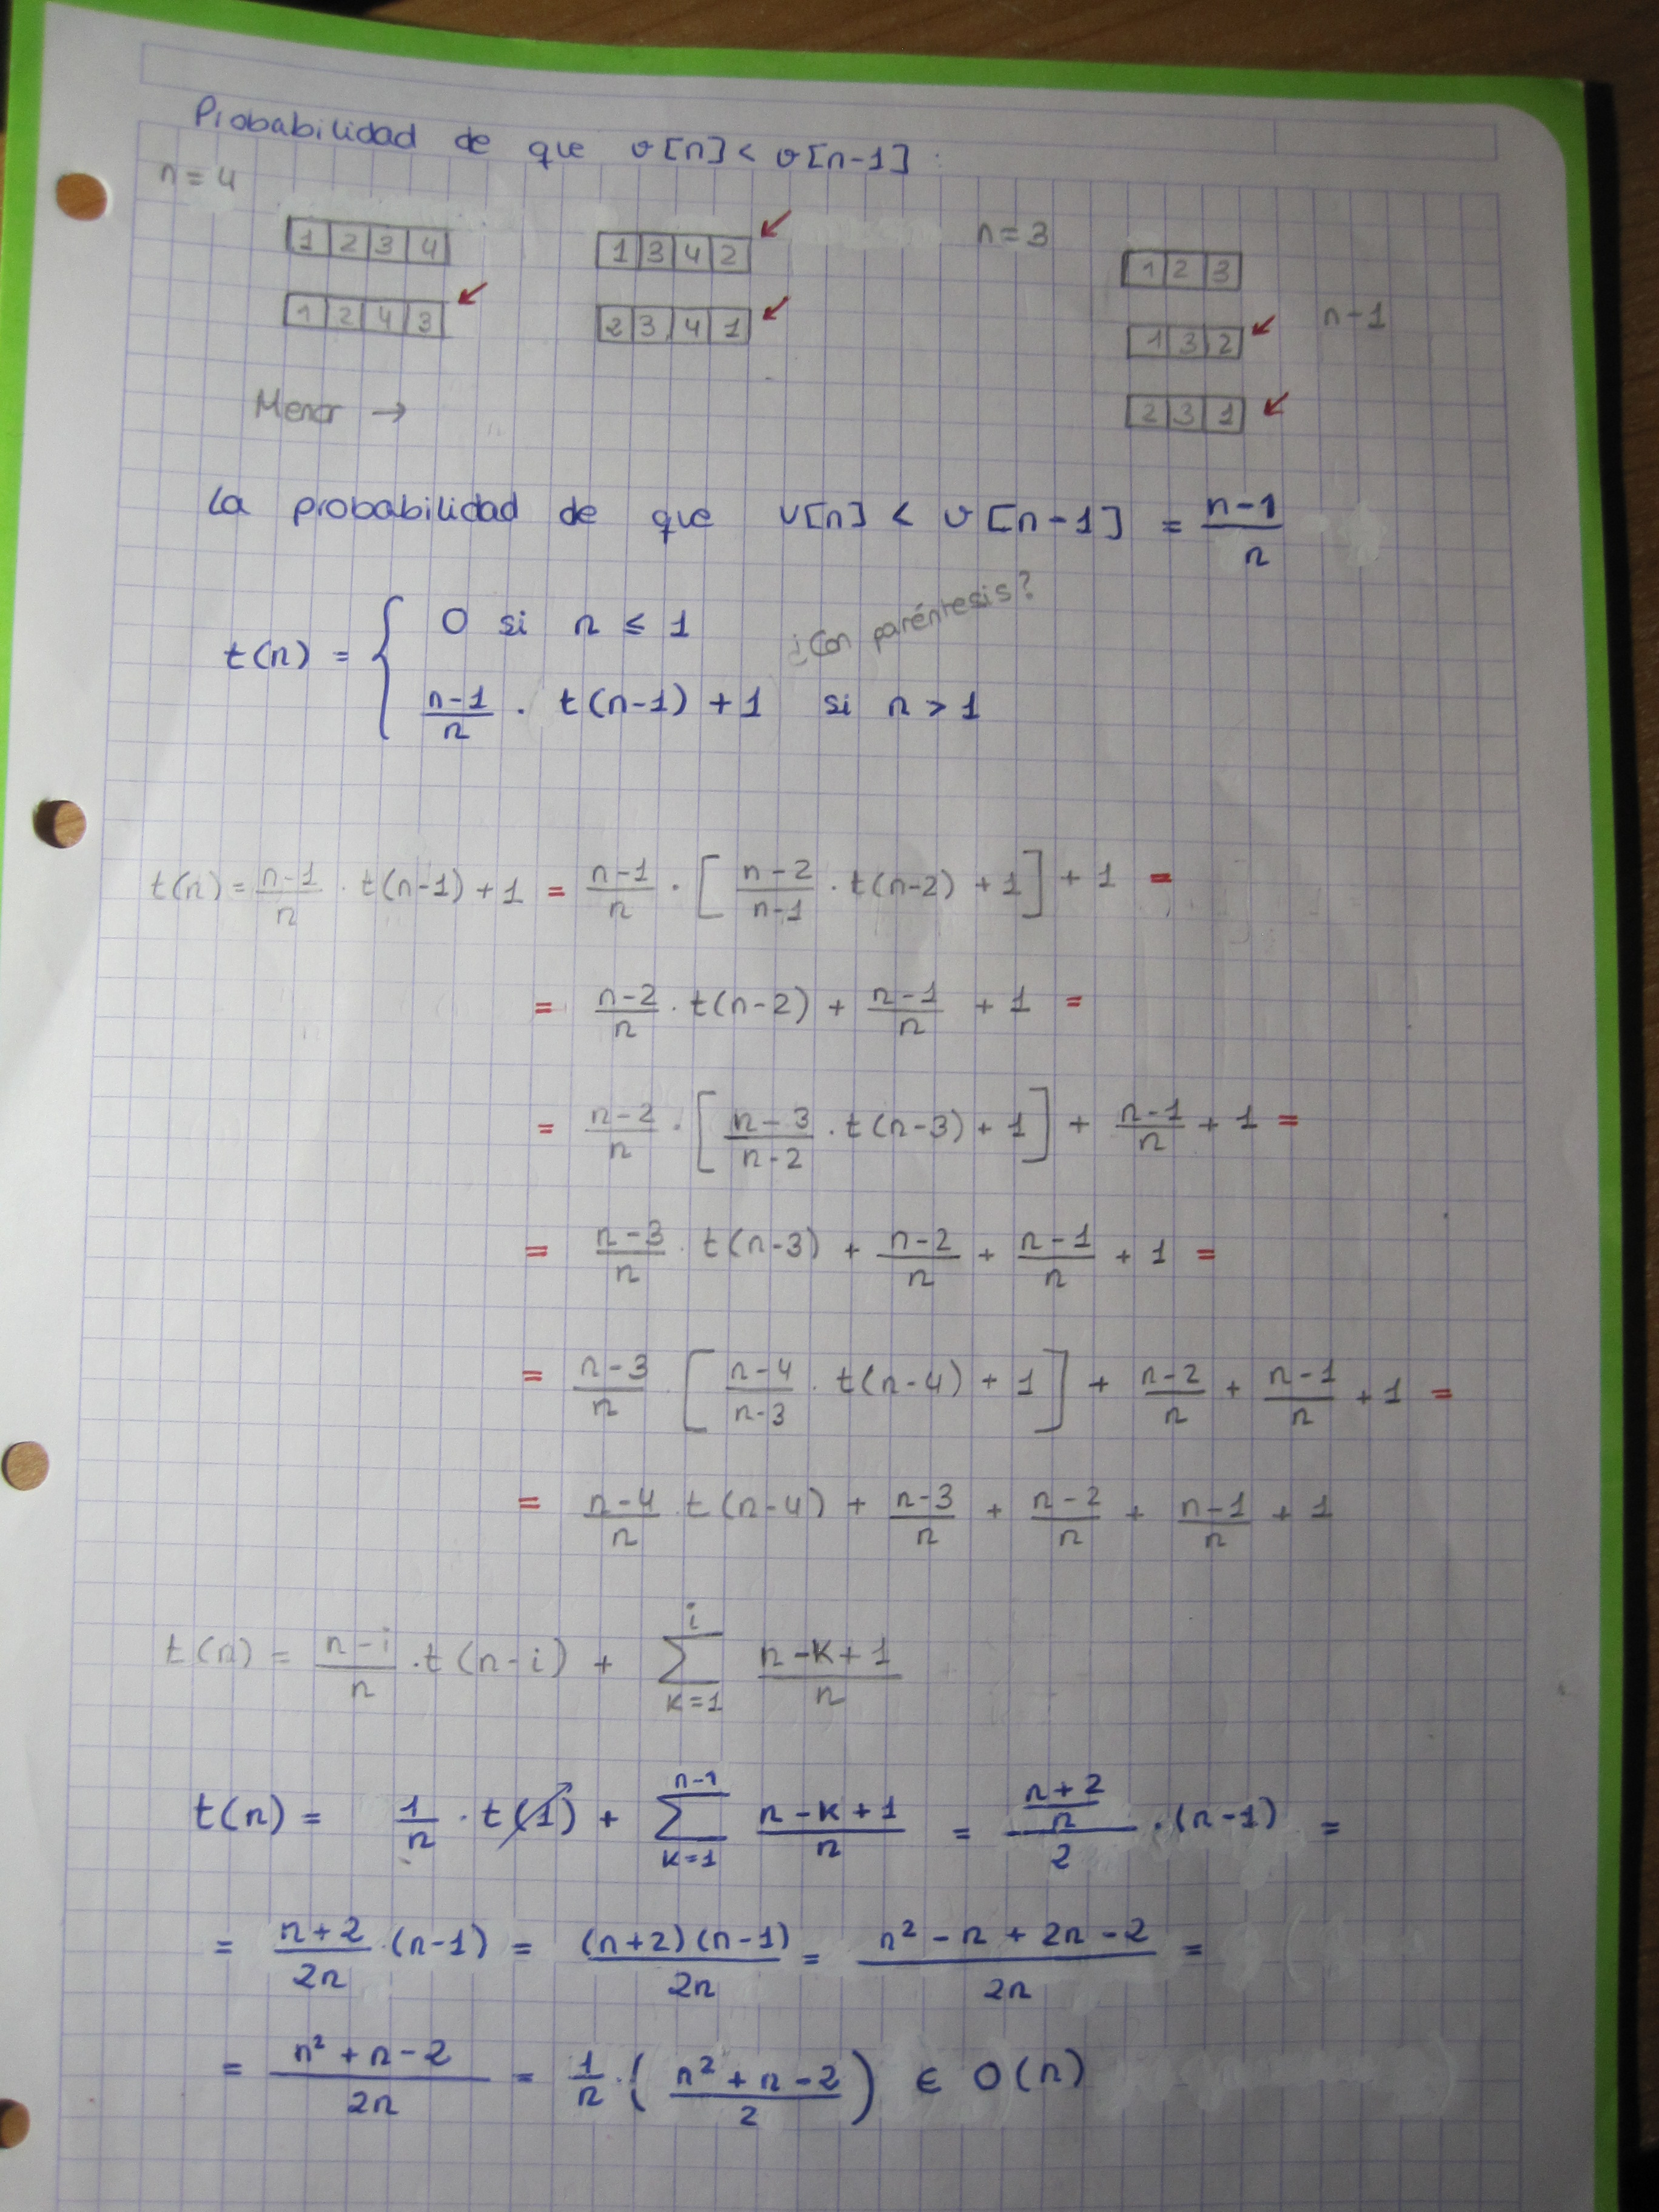 Probabilidad de que v[n] < v[n-1]:
n=4
1 2 3 4
1 3 4 2 ↙
n=3
1 2 3
1 2 4 3 ↙
2 3 4 1 ↙
1 3 2 ↙
n-1
Menor →
2 3 1 ↙
La probabilidad de que v[n] < v[n-1] = \frac{n-1}{n}
t(n) = { 0 si n ≤ 1
¿Con paréntesis?
\frac{n-1}{n} · t(n-1) + 1 si n > 1
t(n) = \frac{n-1}{n} · t(n-1) + 1 = \frac{n-1}{n} · [ \frac{n-2}{n-1} · t(n-2) + 1 ] + 1 =
= \frac{n-2}{n} · t(n-2) + \frac{n-1}{n} + 1 =
= \frac{n-2}{n} · [ \frac{n-3}{n-2} · t(n-3) + 1 ] + \frac{n-1}{n} + 1 =
= \frac{n-3}{n} · t(n-3) + \frac{n-2}{n} + \frac{n-1}{n} + 1 =
= \frac{n-3}{n} · [ \frac{n-4}{n-3} · t(n-4) + 1 ] + \frac{n-2}{n} + \frac{n-1}{n} + 1 =
= \frac{n-4}{n} · t(n-4) + \frac{n-3}{n} + \frac{n-2}{n} + \frac{n-1}{n} + 1
t(n) = \frac{n-i}{n} · t(n-i) + \sum_{k=1}^{i} \frac{n-k+1}{n}
t(n) = \frac{1}{n} · t(1) + \sum_{k=1}^{n-1} \frac{n-k+1}{n} = \frac{\frac{n+2}{n}}{2} · (n-1) =
= \frac{n+2}{2n} · (n-1) = \frac{(n+2)(n-1)}{2n} = \frac{n² - n + 2n - 2}{2n} =
= \frac{n² + n - 2}{2n} = \frac{1}{n} · ( \frac{n² + n - 2}{2} ) ∈ O(n)